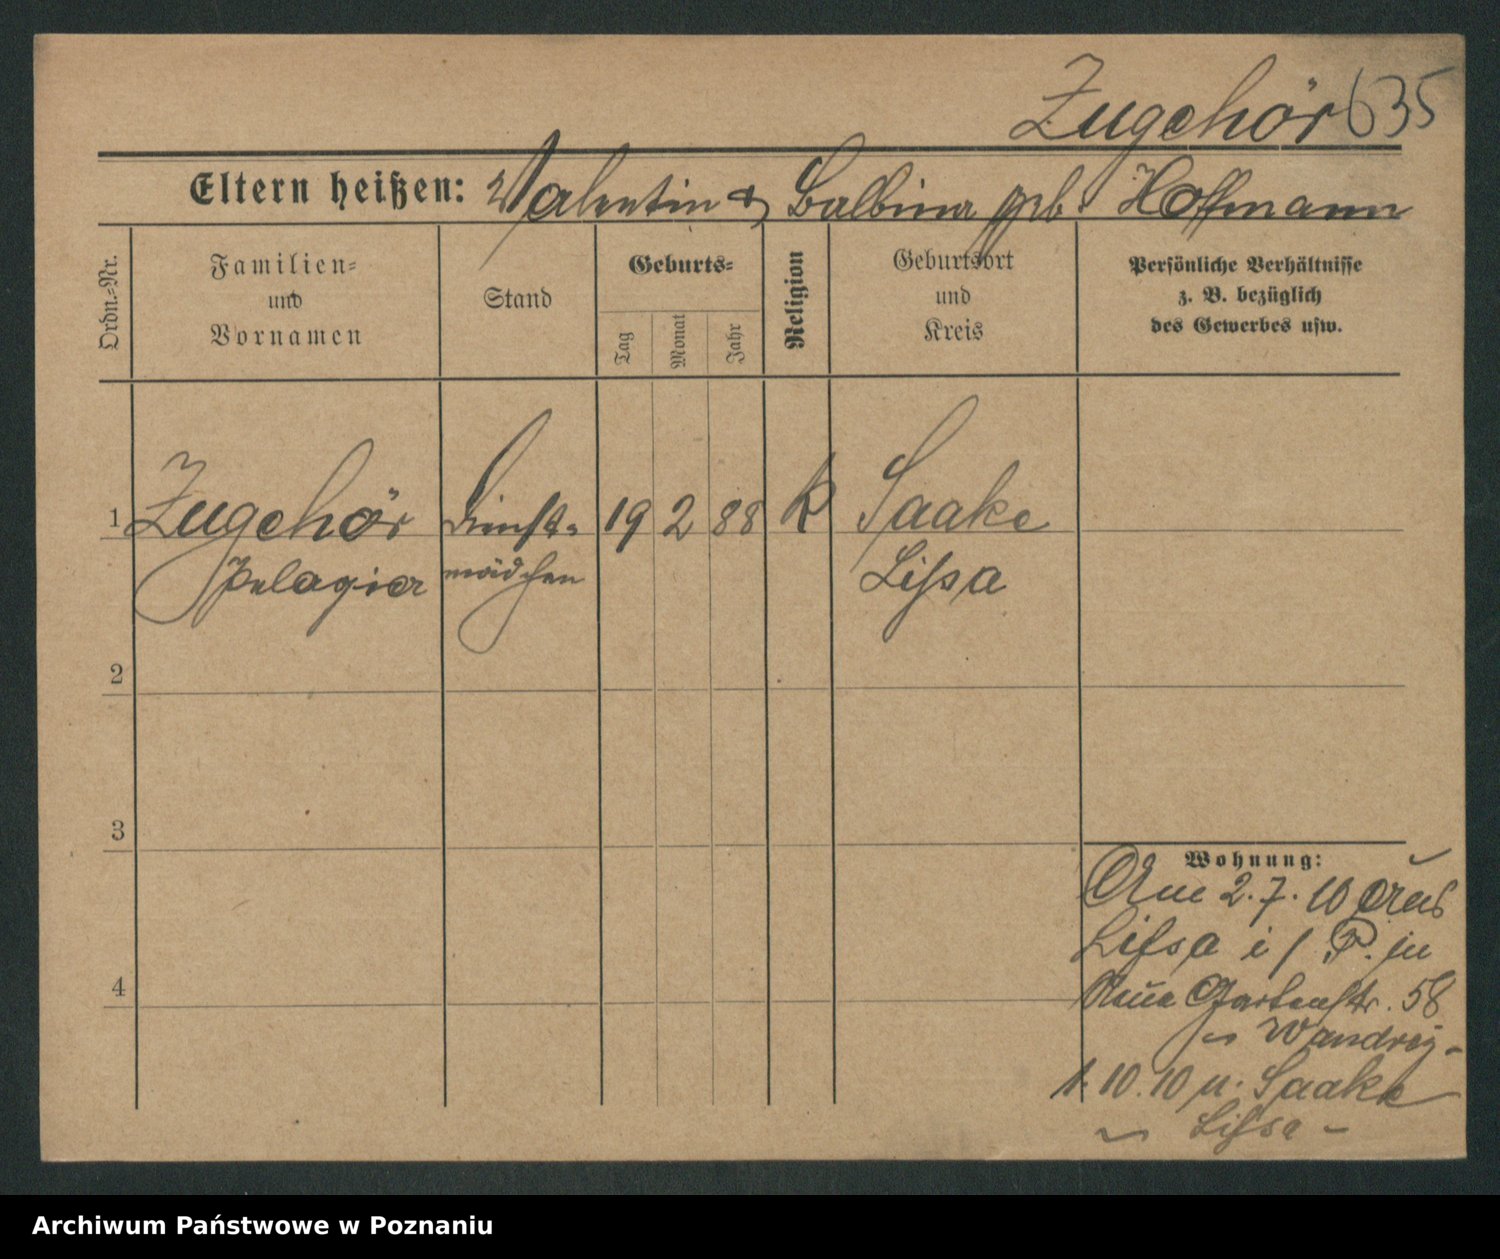 Zugehör 635
Eltern heißen: Valentin & Balbina geb. Hoffmann
Ordn.-Nr.
Familien-
und
Vornamen
Stand
Geburts-
Tag
Monat
Jahr
Religion
Geburtsort
und
Kreis
Persönliche Verhältnisse
z. B. bezüglich
des Gewerbes usw.
1 Zugehör Dienst- 19 2 88 K Saake
Pelagia mädchen Lissa
2
3
4
Wohnung:
Am 2.7.10 aus
Lissa i/P. in
Neue Gartenstr. 58
Wandrey
1.10.10 n. Saake
Lissa
Archiwum Państwowe w Poznaniu